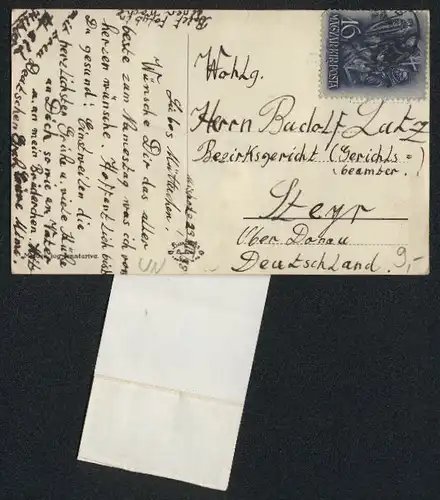 Wohlg.
Herrn Rudolf Lutz
Bezirksgericht (Gerichts=
beamter.)
Steyr
Ober Donau
Deutschland.
9,-
16
MAGYAR POSTA
Liebes Mütterchen!
Wünsche Dir das aller
beste zum Namestag was ich von
herzen wünsche. Hoffentlich bist
Du gesund! Einstweilen die
herzlichsten Grüße u. viele Küsse
an Dich so wie an Vater
u. an mein Brüderchen
Deutschen Gruß Eure Mimi.
UN